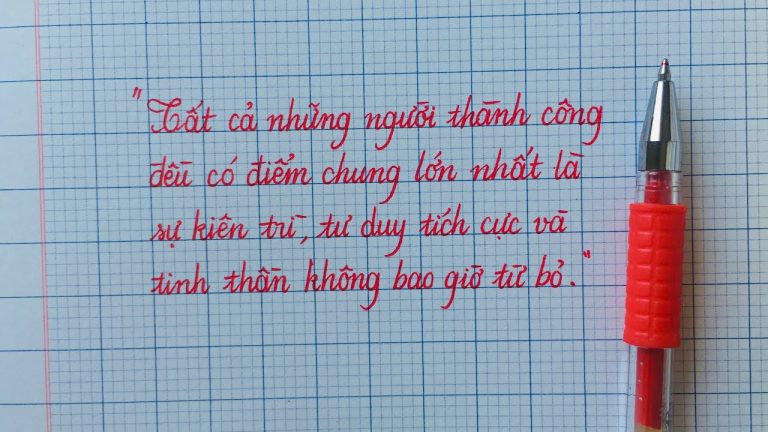 "Tất cả những người thành công
đều có điểm chung lớn nhất là
sự kiên trì, tư duy tích cực và
tinh thần không bao giờ từ bỏ."